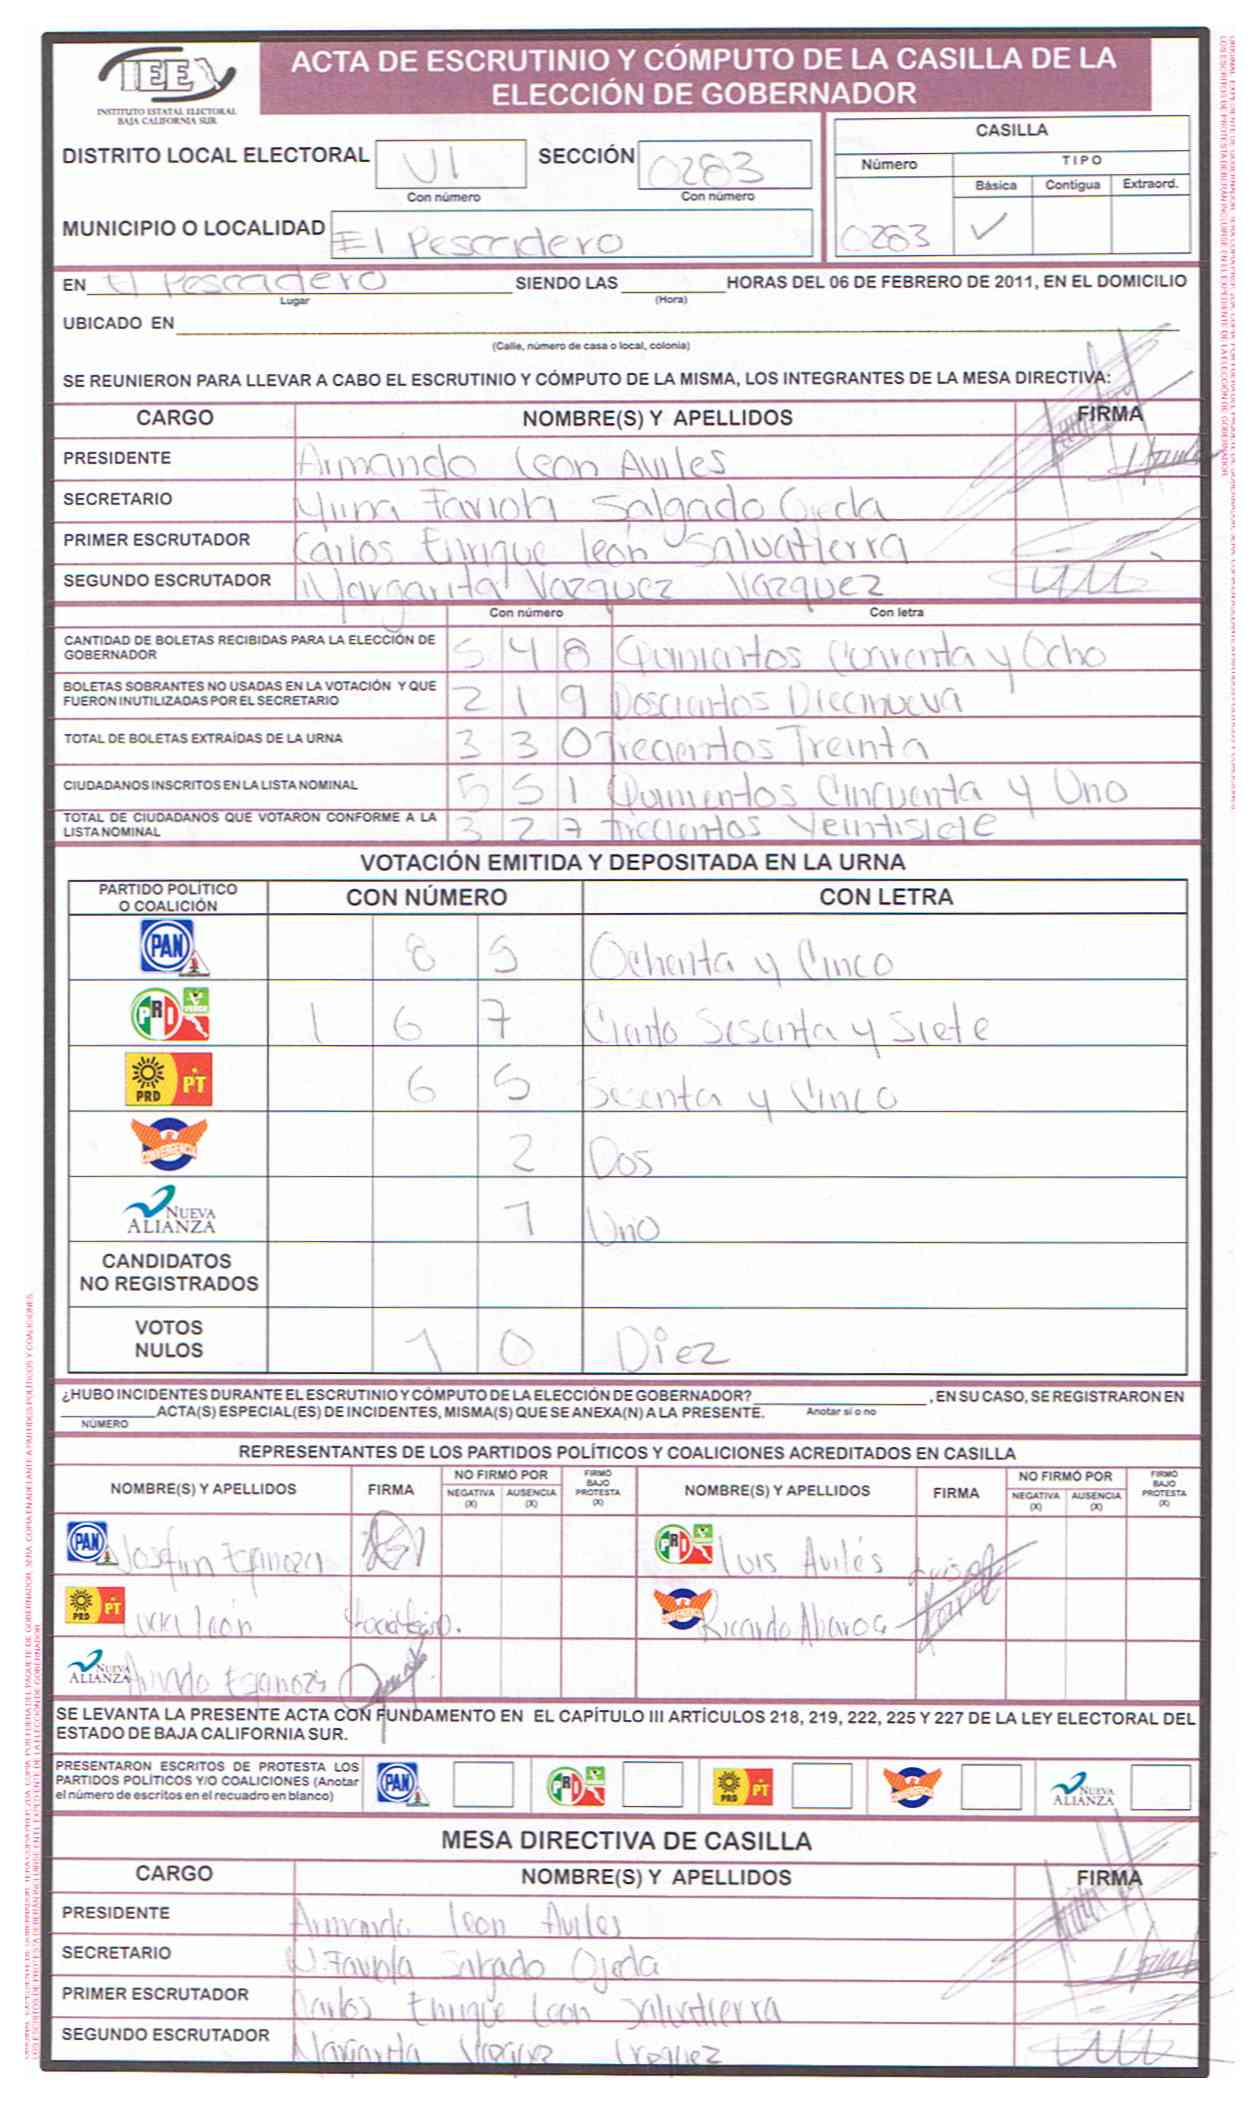 IEE
INSTITUTO ESTATAL ELECTORAL
BAJA CALIFORNIA SUR
ACTA DE ESCRUTINIO Y CÓMPUTO DE LA CASILLA DE LA
ELECCIÓN DE GOBERNADOR
DISTRITO LOCAL ELECTORAL VI SECCIÓN 0283
Con número Con número
MUNICIPIO O LOCALIDAD El Pescadero
CASILLA
Número TIPO
Básica Contigua Extraord.
0283 ✓
EN El Pescadero SIENDO LAS HORAS DEL 06 DE FEBRERO DE 2011, EN EL DOMICILIO
Lugar (Hora)
UBICADO EN
(Calle, número de casa o local, colonia)
SE REUNIERON PARA LLEVAR A CABO EL ESCRUTINIO Y CÓMPUTO DE LA MISMA, LOS INTEGRANTES DE LA MESA DIRECTIVA:
CARGO NOMBRE(S) Y APELLIDOS FIRMA
PRESIDENTE Armando Leon Aviles
SECRETARIO Faviola Salgado Ojeda
PRIMER ESCRUTADOR Carlos Enrique león Salvatierra
SEGUNDO ESCRUTADOR Margarita Vazquez Vazquez
Con número Con letra
CANTIDAD DE BOLETAS RECIBIDAS PARA LA ELECCIÓN DE
GOBERNADOR 5 4 8 Quinientos y Ocho
BOLETAS SOBRANTES NO USADAS EN LA VOTACIÓN Y QUE
FUERON INUTILIZADAS POR EL SECRETARIO 2 1 9 Doscientos
TOTAL DE BOLETAS EXTRAÍDAS DE LA URNA 3 3 0 Trecientos Treinta
CIUDADANOS INSCRITOS EN LA LISTA NOMINAL 5 5 1 Quinientos Cincuenta y Uno
TOTAL DE CIUDADANOS QUE VOTARON CONFORME A LA
LISTA NOMINAL 3 2 7 Trecientos Veintisiete
VOTACIÓN EMITIDA Y DEPOSITADA EN LA URNA
PARTIDO POLÍTICO
O COALICIÓN CON NÚMERO CON LETRA
PAN 8 5 Ochenta y Cinco
PRI VERDE 1 6 7 Ciento Sesenta y Siete
PRD PT 6 5 Sesenta y Cinco
CONVERGENCIA 2 Dos
NUEVA ALIANZA 1 Uno
CANDIDATOS
NO REGISTRADOS
VOTOS
NULOS 1 0 Diez
¿HUBO INCIDENTES DURANTE EL ESCRUTINIO Y CÓMPUTO DE LA ELECCIÓN DE GOBERNADOR? , EN SU CASO, SE REGISTRARON EN
ACTA(S) ESPECIAL(ES) DE INCIDENTES, MISMA(S) QUE SE ANEXA(N) A LA PRESENTE. Anotar sí o no
NÚMERO
REPRESENTANTES DE LOS PARTIDOS POLÍTICOS Y COALICIONES ACREDITADOS EN CASILLA
NOMBRE(S) Y APELLIDOS FIRMA NO FIRMÓ POR NEGATIVA (X) AUSENCIA (X) FIRMÓ BAJO PROTESTA (X) NOMBRE(S) Y APELLIDOS FIRMA NO FIRMÓ POR NEGATIVA (X) AUSENCIA (X) FIRMÓ BAJO PROTESTA (X)
PAN Espinoza PRI Luis Avilés
PRD PT león CONVERGENCIA Ricardo Abaroa
NUEVA ALIANZA Espinoza
SE LEVANTA LA PRESENTE ACTA CON FUNDAMENTO EN EL CAPÍTULO III ARTÍCULOS 218, 219, 222, 225 Y 227 DE LA LEY ELECTORAL DEL
ESTADO DE BAJA CALIFORNIA SUR.
PRESENTARON ESCRITOS DE PROTESTA LOS
PARTIDOS POLÍTICOS Y/O COALICIONES (Anotar
el número de escritos en el recuadro en blanco)
PAN PRI PRD PT CONVERGENCIA NUEVA ALIANZA
MESA DIRECTIVA DE CASILLA
CARGO NOMBRE(S) Y APELLIDOS FIRMA
PRESIDENTE Armando leon Aviles
SECRETARIO Faviola Salgado Ojeda
PRIMER ESCRUTADOR Carlos Enrique Leon Salvatierra
SEGUNDO ESCRUTADOR Margarita